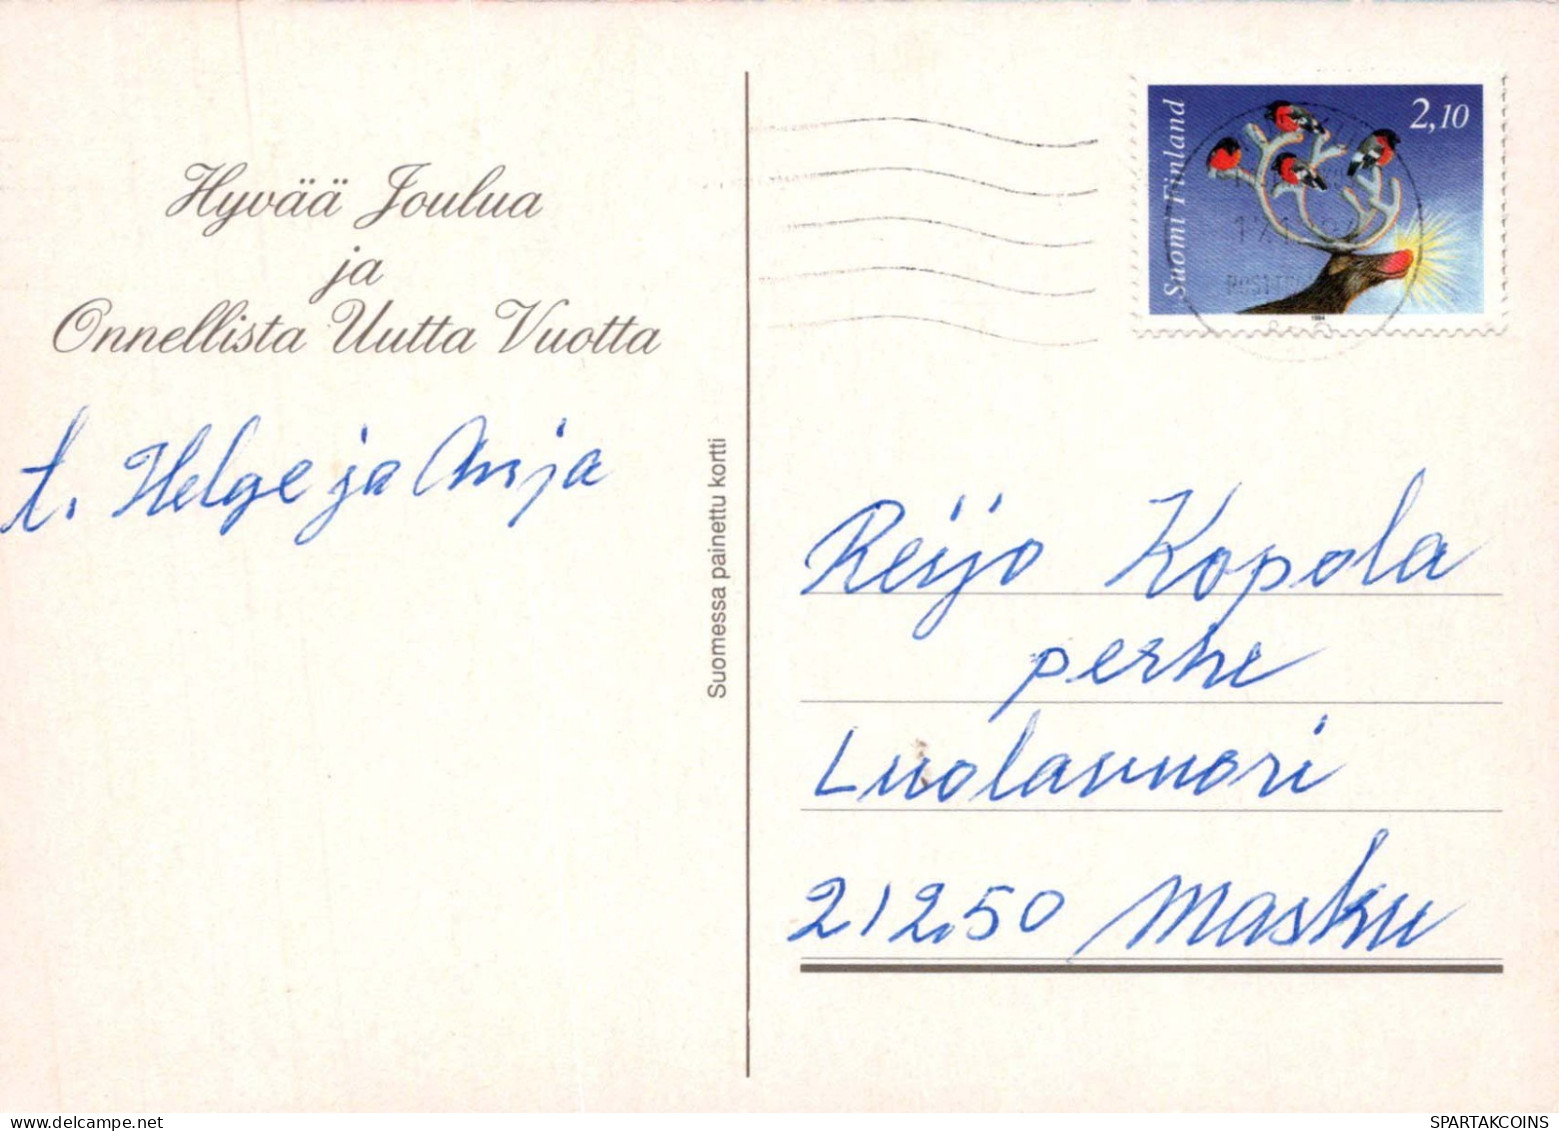 Hyvää Joulua
ja
Onnellista Uutta Vuotta
t. Helge ja Anja
Suomessa painettu kortti
Suomi Finland
2,10
1994
Reijo Kopola
perhe
Luolavuori
21250 Masku
SPARTAKCOINS